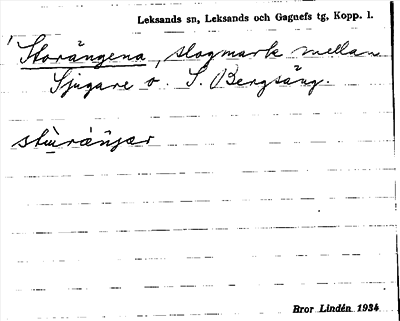 Leksands sn, Leksands och Gagnefs tg, Kopp. l.
Storängena, slogmark mellan
Sjugare o. S. Bergsäng.
Bror Lindén 1934